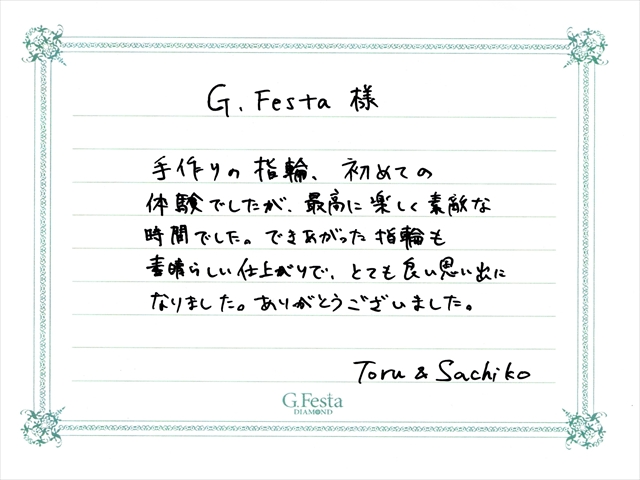 G. Festa 様
手作りの指輪、初めての
体験でしたが、最高に楽しく素敵な
時間でした。できあがった指輪も
素晴らしい仕上がりで、とても良い思い出に
なりました。ありがとうございました。
Toru & Sachiko
G.Festa
DIAMOND